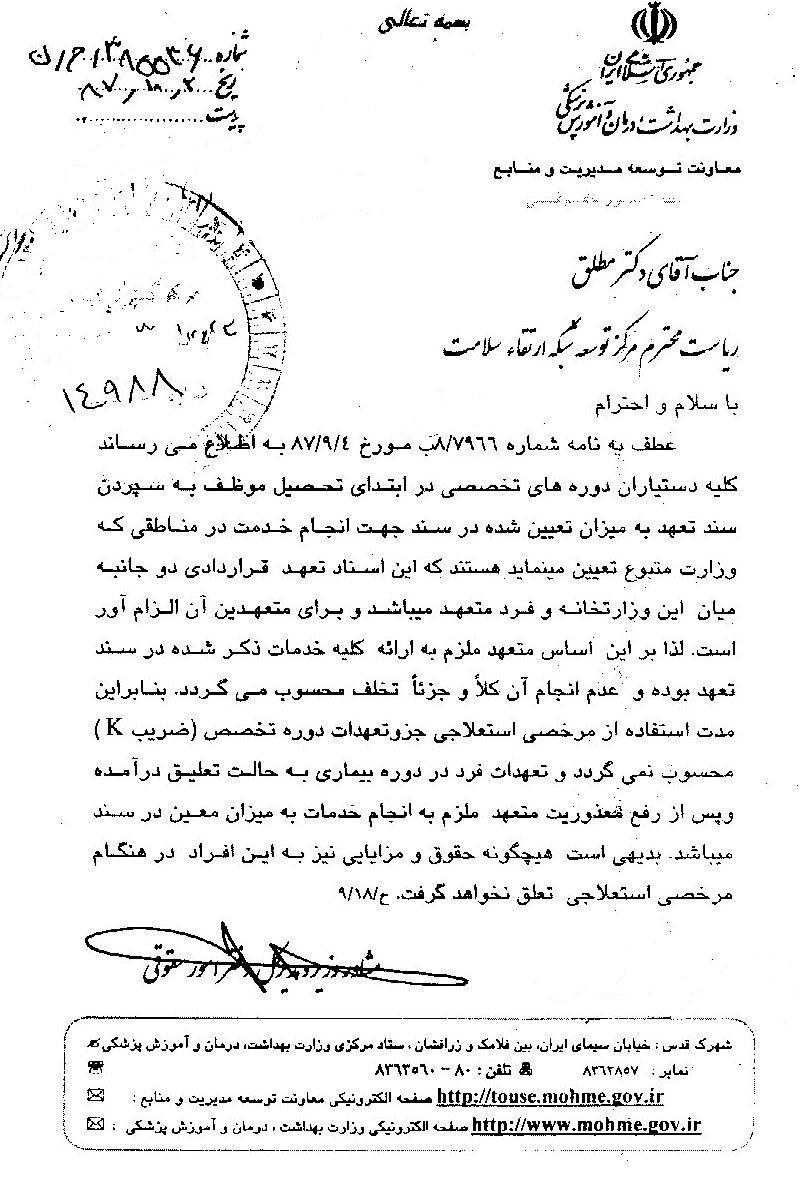 بسمه تعالی
جمهوری اسلامی ایران
وزارت بهداشت، درمان و آموزش پزشکی
معاونت توسعه مدیریت و منابع
شماره ۱۳۸۵۵۳۶/ح/ن
تاریخ
پیوست
۱۴۹۸۸
جناب آقای دکتر مطلق
ریاست محترم مرکز توسعه شبکه ارتقاء سلامت
با سلام و احترام
عطف به نامه شماره ۸/۷۹۶۶ب مورخ ۸۷/۹/۴ به اطلاع می رساند
کلیه دستیاران دوره های تخصصی در ابتدای تحصیل موظف به سپردن
سند تعهد به میزان تعیین شده در سند جهت انجام خدمت در مناطقی که
وزارت متبوع تعیین مینماید هستند که این اسناد تعهد قراردادی دو جانبه
میان این وزارتخانه و فرد متعهد میباشد و برای متعهدین آن الزام آور
است. لذا بر این اساس متعهد ملزم به ارائه کلیه خدمات ذکر شده در سند
تعهد بوده و عدم انجام آن کلاً و جزئاً تخلف محسوب می گردد. بنابراین
مدت استفاده از مرخصی استعلاجی جزوتعهدات دوره تخصص (ضریب K )
محسوب نمی گردد و تعهدات فرد در دوره بیماری به حالت تعلیق درآمده
وپس از رفع معذوریت متعهد ملزم به انجام خدمات به میزان معین در سند
میباشد. بدیهی است هیچگونه حقوق و مزایایی نیز به این افراد در هنگام
مرخصی استعلاجی تعلق نخواهد گرفت. ح/۹/۱۸
مشاور وزیر و مدیرکل دفتر امور حقوقی
شهرک قدس : خیابان سیمای ایران، بین فلامک و زرافشان ، ستاد مرکزی وزارت بهداشت، درمان و آموزش پزشکی
نمابر : ۸۳۶۳۸۵۷ تلفن : ۸۰ – ۸۳۶۳۵۶۰
http://touse.mohme.gov.ir صفحه الکترونیکی معاونت توسعه مدیریت و منابع :
http://www.mohme.gov.ir صفحه الکترونیکی وزارت بهداشت ، درمان و آموزش پزشکی :